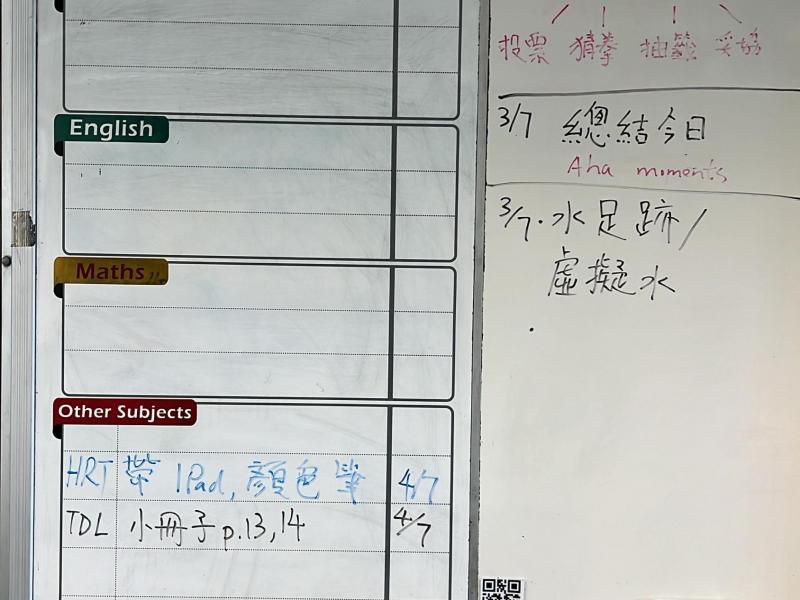 English
Maths
Other Subjects
HRT 帶 IPad, 顏色筆 4/7
TDL 小冊子 p.13,14 4/7
投票 猜拳 抽籤 妥協
3/7 總結今日
Aha moments
3/7. 水足跡/
虛擬水